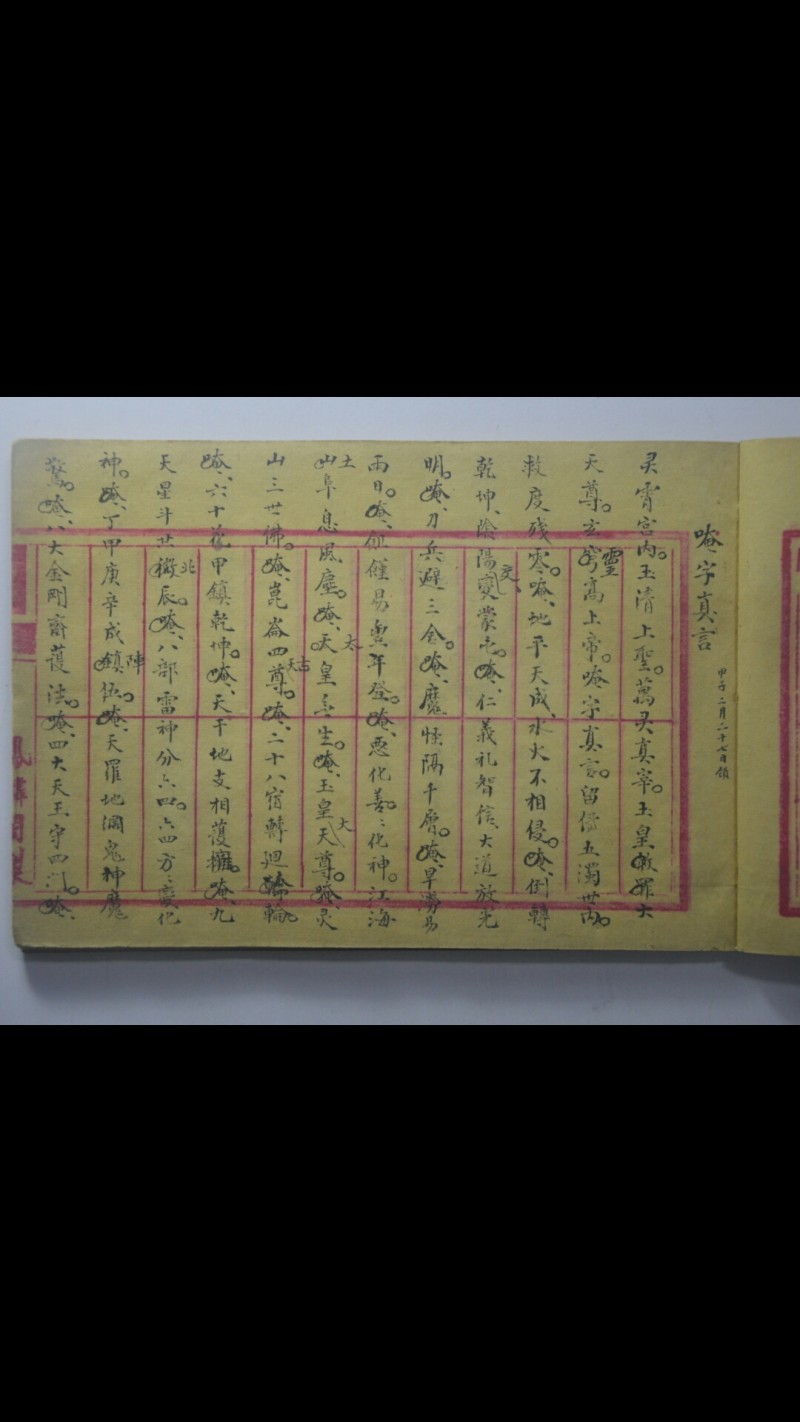 唵字真言
甲子二月二十七日領
灵霄宮内。玉清上聖。萬灵真宰。玉皇赦罪大
天尊。玄穹高上帝。唵字真言。留傳五濁世
靈
救度殘零。唵、地平天成、水火不相侵。唵、倒轉
乾坤、陰陽變蒙屯。唵、仁義礼智信、大道放光
交
明。唵、刀兵避三舍。唵、魔怪隔千層。唵、旱澇易
雨日。唵、饑饉易豊年登。唵、悪化善。善化神。江海
山阜息風塵。唵、天皇無生。唵、玉皇天尊。唵、灵
土
太
大
山三世佛。唵、崑崙四尊。唵、二十八宿轉迴輪
古
天
唵、六十花甲鎮乾坤。唵、天干地支相護擁。唵、九
天星斗共辰。唵、八部雷神分六四。六四方方變化
北
神。唵、丁甲庚辛成鎮伍。唵、天羅地網鬼神魔
陣
驚。唵、八大金剛齊護法。唵、四大天王守四門。唵、